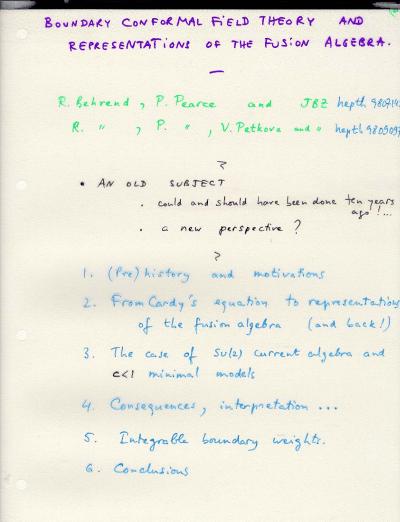 BOUNDARY CONFORMAL FIELD THEORY AND
REPRESENTATIONS OF THE FUSION ALGEBRA.
R. Behrend, P. Pearce and JBZ hepth
R. " , P. " , V. Petkova and " hepth 9809097
• AN OLD SUBJECT
. could and should have been done ten years
ago!...
. a new perspective?
1. (Pre)history and motivations
2. From Cardy's equation to representations
of the fusion algebra (and back!)
3. The case of SU(2) current algebra and
c<1 minimal models
4. Consequences, interpretation ...
5. Integrable boundary weights.
6. Conclusions